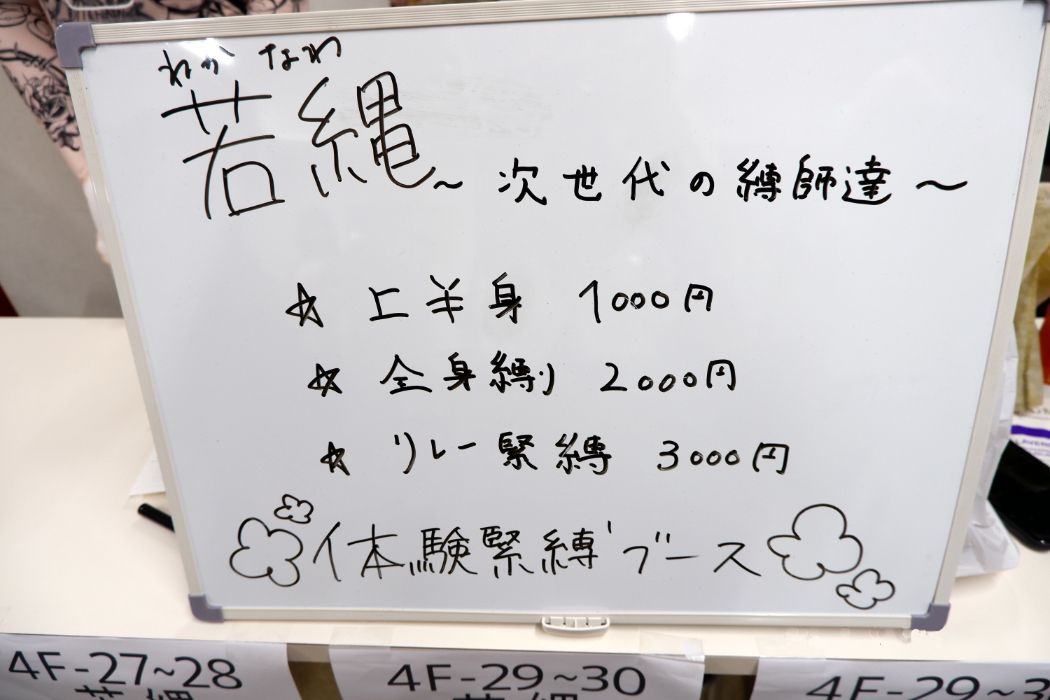 わか なわ
若縄
～ 次世代の縛師達 ～
☆ 上半身 1000円
☆ 全身縛り 2000円
☆ リレー緊縛 3000円
体験緊縛ブース
4F-27~28
若縄
4F-29~30
若縄
4F-29~3